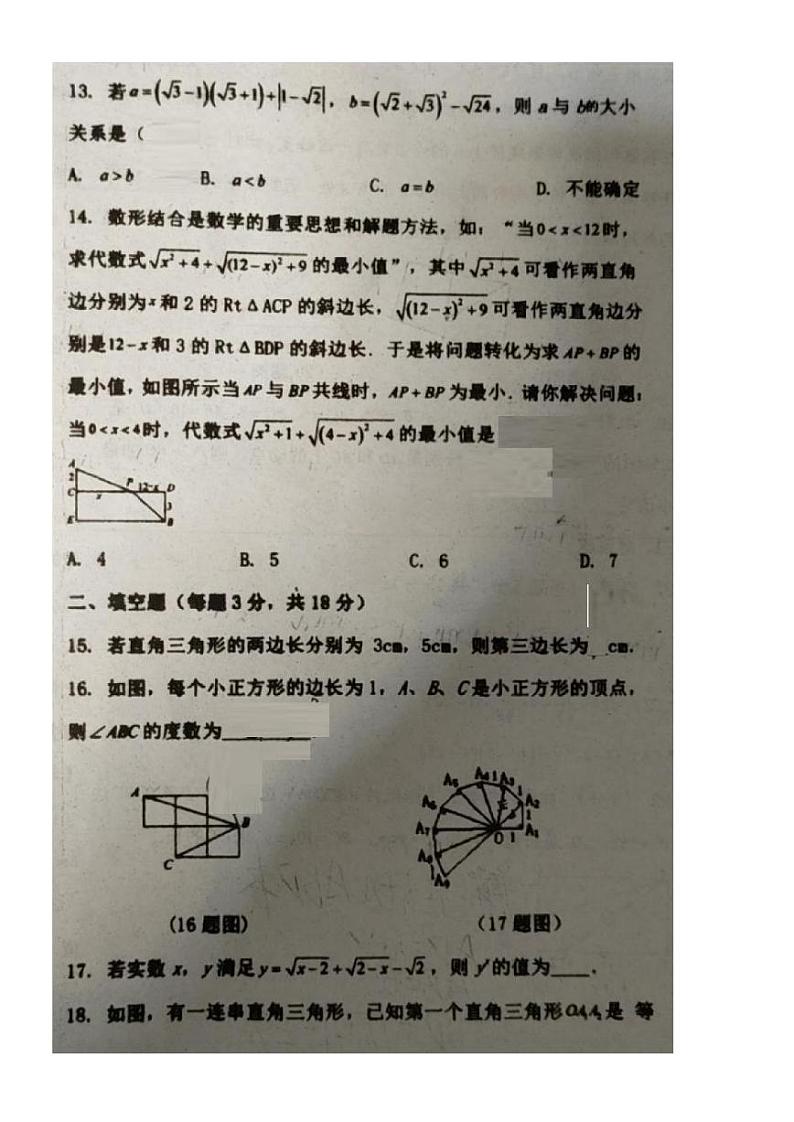 13. 若a=(√3-1)(√3+1)+|1-√2|, b=(√2+√3)²-√24, 则 a 与 b的大小
关系是（
A. a>b B. a<b C. a=b D. 不能确定
14. 数形结合是数学的重要思想和解题方法, 如: "当0<x<12时,
求代数式√(x²+4)+√((12-x)²+9)的最小值", 其中√(x²+4)可看作两直角
边分别为x和 2 的 Rt△ACP 的斜边长, √((12-x)²+9)可看作两直角边分
别是12-x和 3 的 Rt△BDP 的斜边长. 于是将问题转化为求 AP+BP 的
最小值, 如图所示当 AP 与 BP 共线时, AP+BP 为最小. 请你解决问题:
当0<x<4时, 代数式√(x²+1)+√((4-x)²+4)的最小值是
A
2
C x P 12-x D
3
E B
A. 4 B. 5 C. 6 D. 7
二、填空题（每题3分, 共18分）
15. 若直角三角形的两边长分别为 3cm, 5cm, 则第三边长为 cm.
16. 如图, 每个小正方形的边长为1, A、B、C是小正方形的顶点,
则∠ABC的度数为________
A
B
C
A₅ A₄ 1 A₃
1
A₆ A₂
1
A₇ O 1 A₁
A₈
1 A₉
(16题图) (17题图)
17. 若实数 x, y满足y=√(x-2)+√(2-x)-√2, 则 yˣ的值为____.
18. 如图, 有一连串直角三角形, 已知第一个直角三角形OA₁A₂是 等